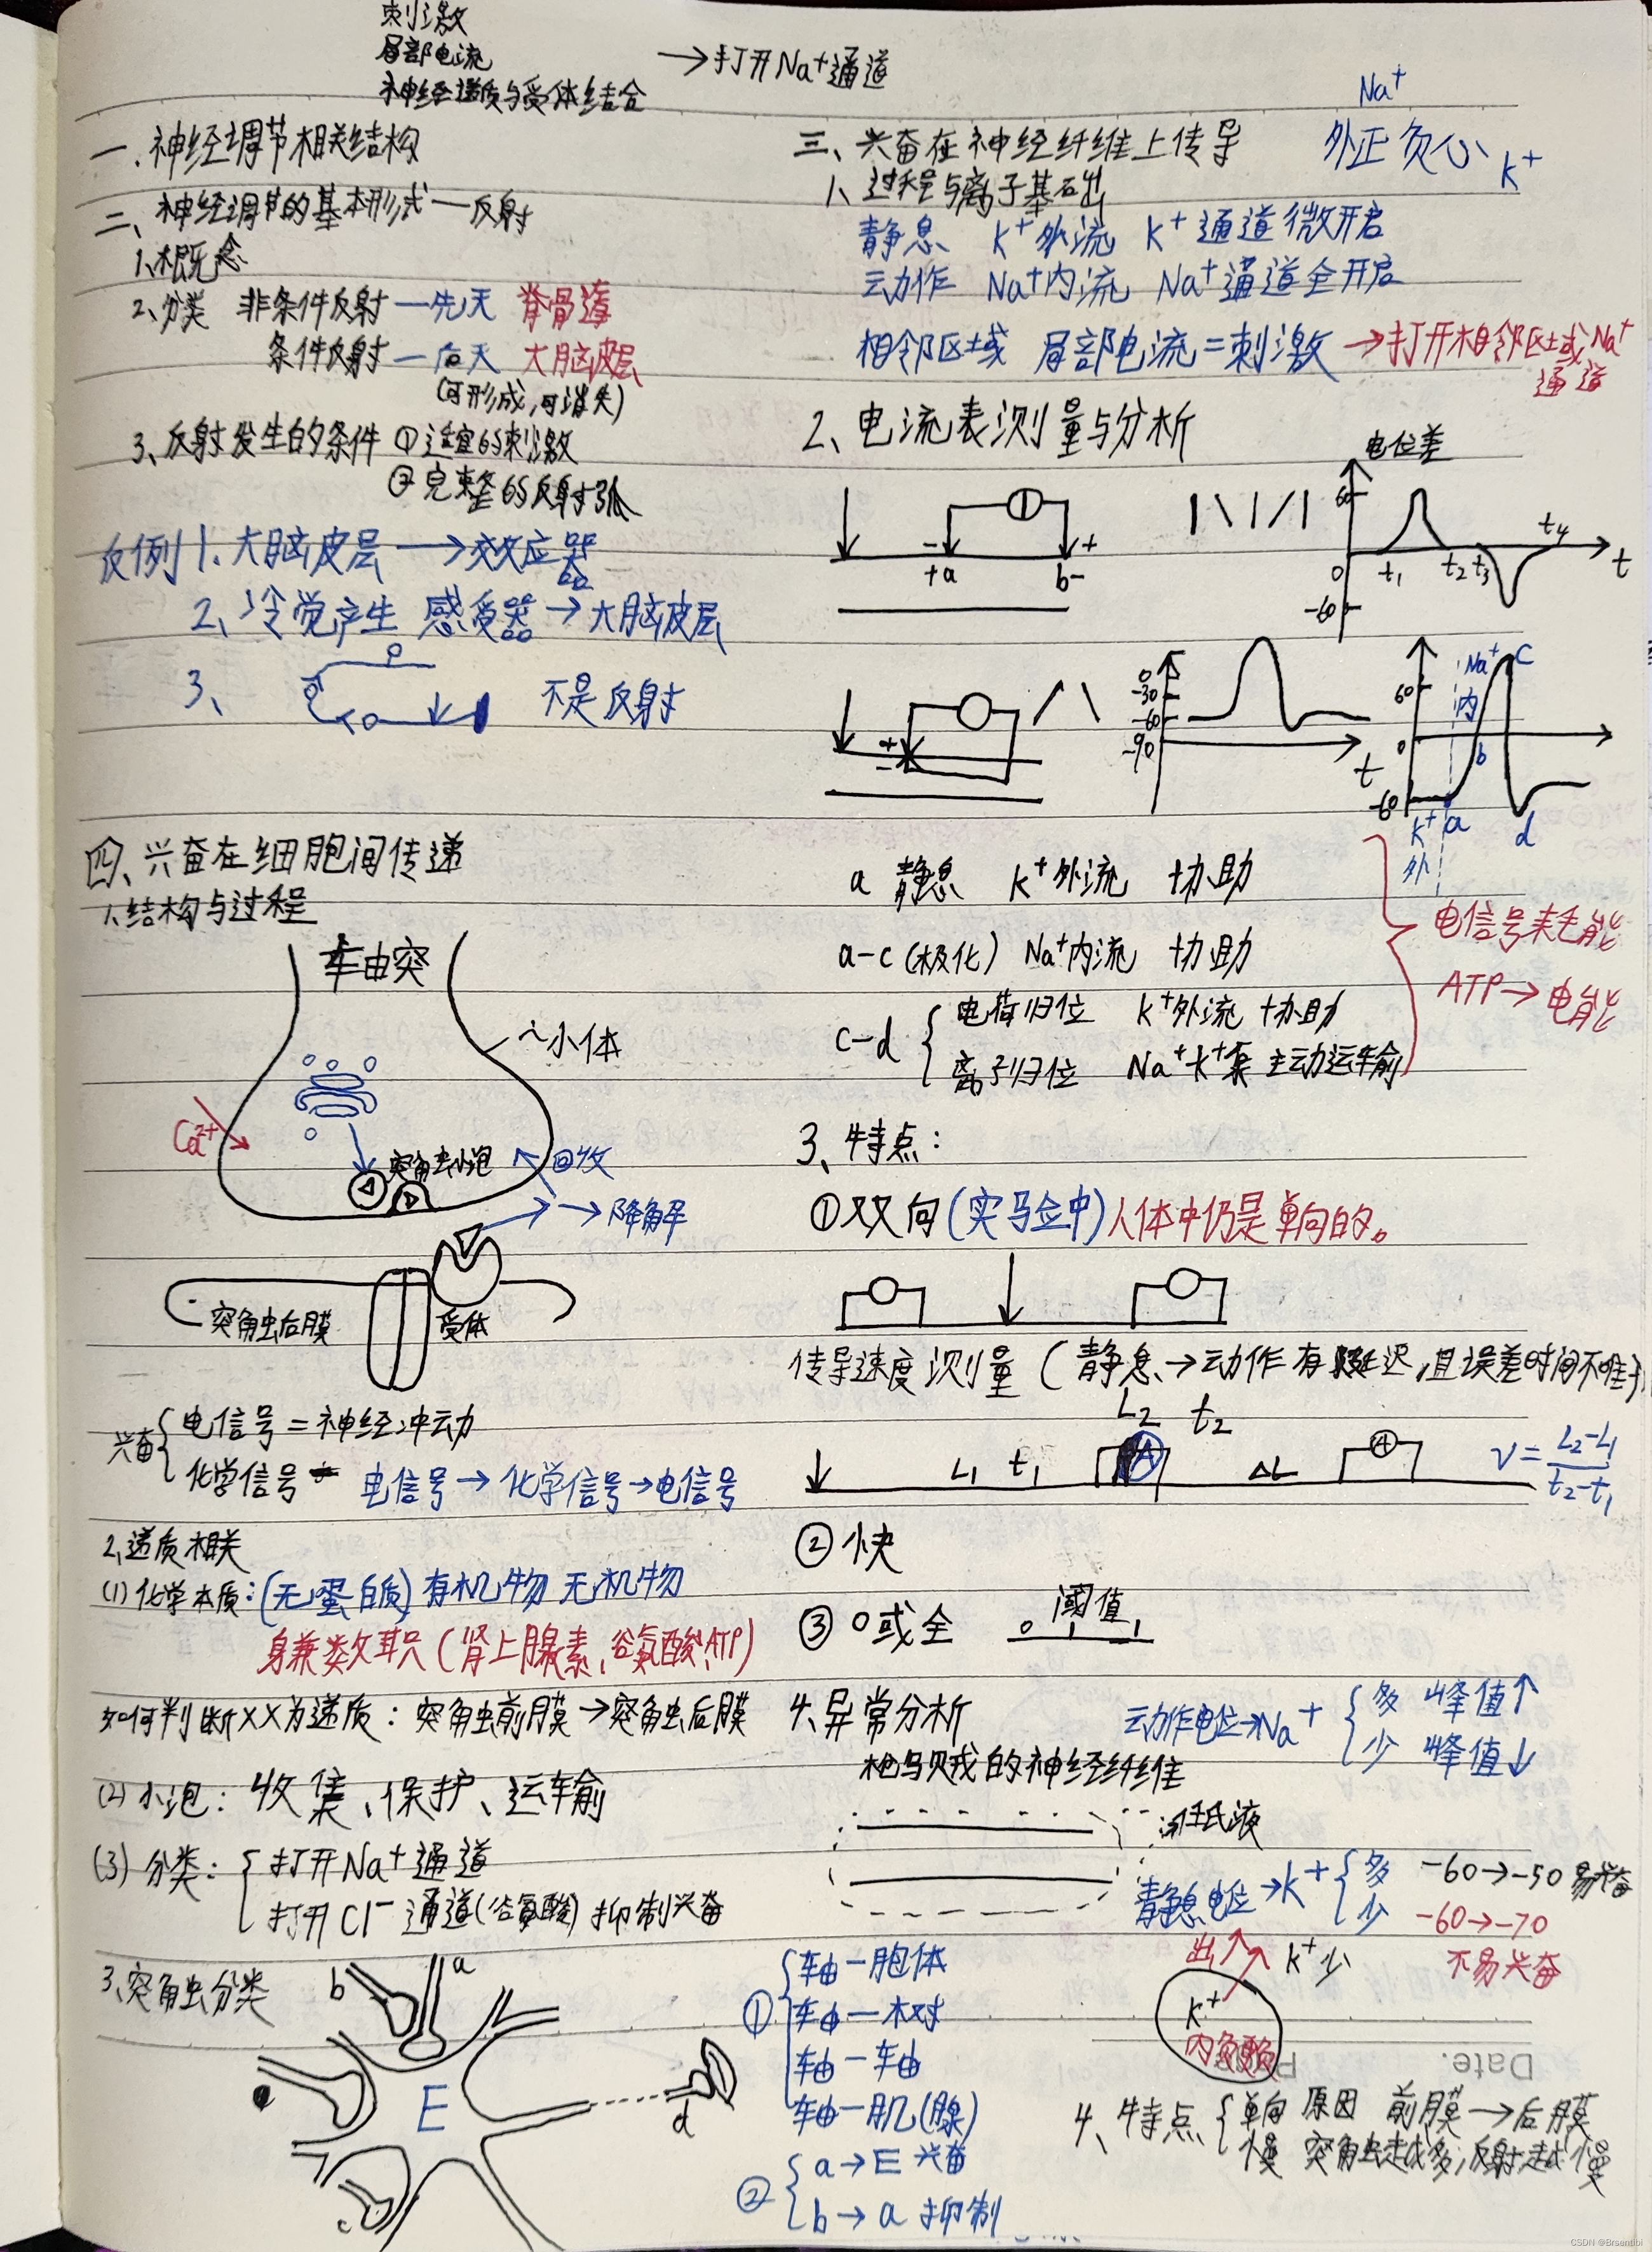 刺激
局部电流
神经递质与受体结合
→打开Na⁺通道
一.神经调节相关结构
二、神经调节的基本形式—反射
1、概念
2、分类 非条件反射—先天 脊骨遂
条件反射—后天 大脑皮层
(可形成,可消失)
3、反射发生的条件 ①适宜的刺激
②完整的反射弧
反例 1.大脑皮层→效应器
2、冷觉产生 感受器→大脑皮层
3、 不是反射
四、兴奋在细胞间传递
1、结构与过程
轴突
~小体
Ca²⁺
突触小泡
回收
→降解
突触后膜
受体
兴奋{电信号=神经冲动
化学信号 电信号→化学信号→电信号
2、递质相关
(1)化学本质:(无蛋白质)有机物 无机物
身兼数职(肾上腺素、谷氨酸、ATP)
如何判断XX为递质:突触前膜→突触后膜
(2)小泡:收集、保护、运输
(3)分类:{打开Na⁺通道
打开Cl⁻通道(谷氨酸)抑制兴奋
3、突触分类
b
a
E
d
c
①{轴—胞体
轴—树
轴—轴
轴—肌(腺)
②{a→E 兴奋
b→a 抑制
三、兴奋在神经纤维上传导
Na⁺
外正负心
K⁺
1、过程与离子基础
静息 K⁺外流 K⁺通道微开启
动作 Na⁺内流 Na⁺通道全开启
相邻区域 局部电流=刺激→打开相邻区域Na⁺
通道
2、电流表测量与分析
- +
+a b-
| \ | / |
电位差
60
0
-60
t₁ t₂ t₃ t₄
t
+
-
/ \
0
-30
-60
-90
t
60
0
-60
Na⁺
内
K⁺
外
a
b
c
d
a 静息 K⁺外流 协助
a-c(极化) Na⁺内流 协助
c-d{电荷归位 K⁺外流 协助
离子归位 Na⁺K⁺泵 主动运输
电信号耗能
ATP→电能
3、特点:
①双向(实验中)人体中仍是单向的。
传导速度测量(静息→动作有延迟,且误差时间不唯一)
L₂ t₂
L₁ t₁
A
ΔL
A
v=(L₂-L₁)/(t₂-t₁)
②快
③0或全
0 阈值 1
4、异常分析
枪乌贼的神经纤维
动作电位→Na⁺{多 峰值↑
少 峰值↓
:任氏液
静息电位→K⁺{多 -60→-50 易兴奋
少 -60→-70
不易兴奋
出↑
K⁺少
K⁺
Date.
4、特点{单向 原因 前膜→后膜
慢 突触越多,反射越慢
CSDN @Brsentibi